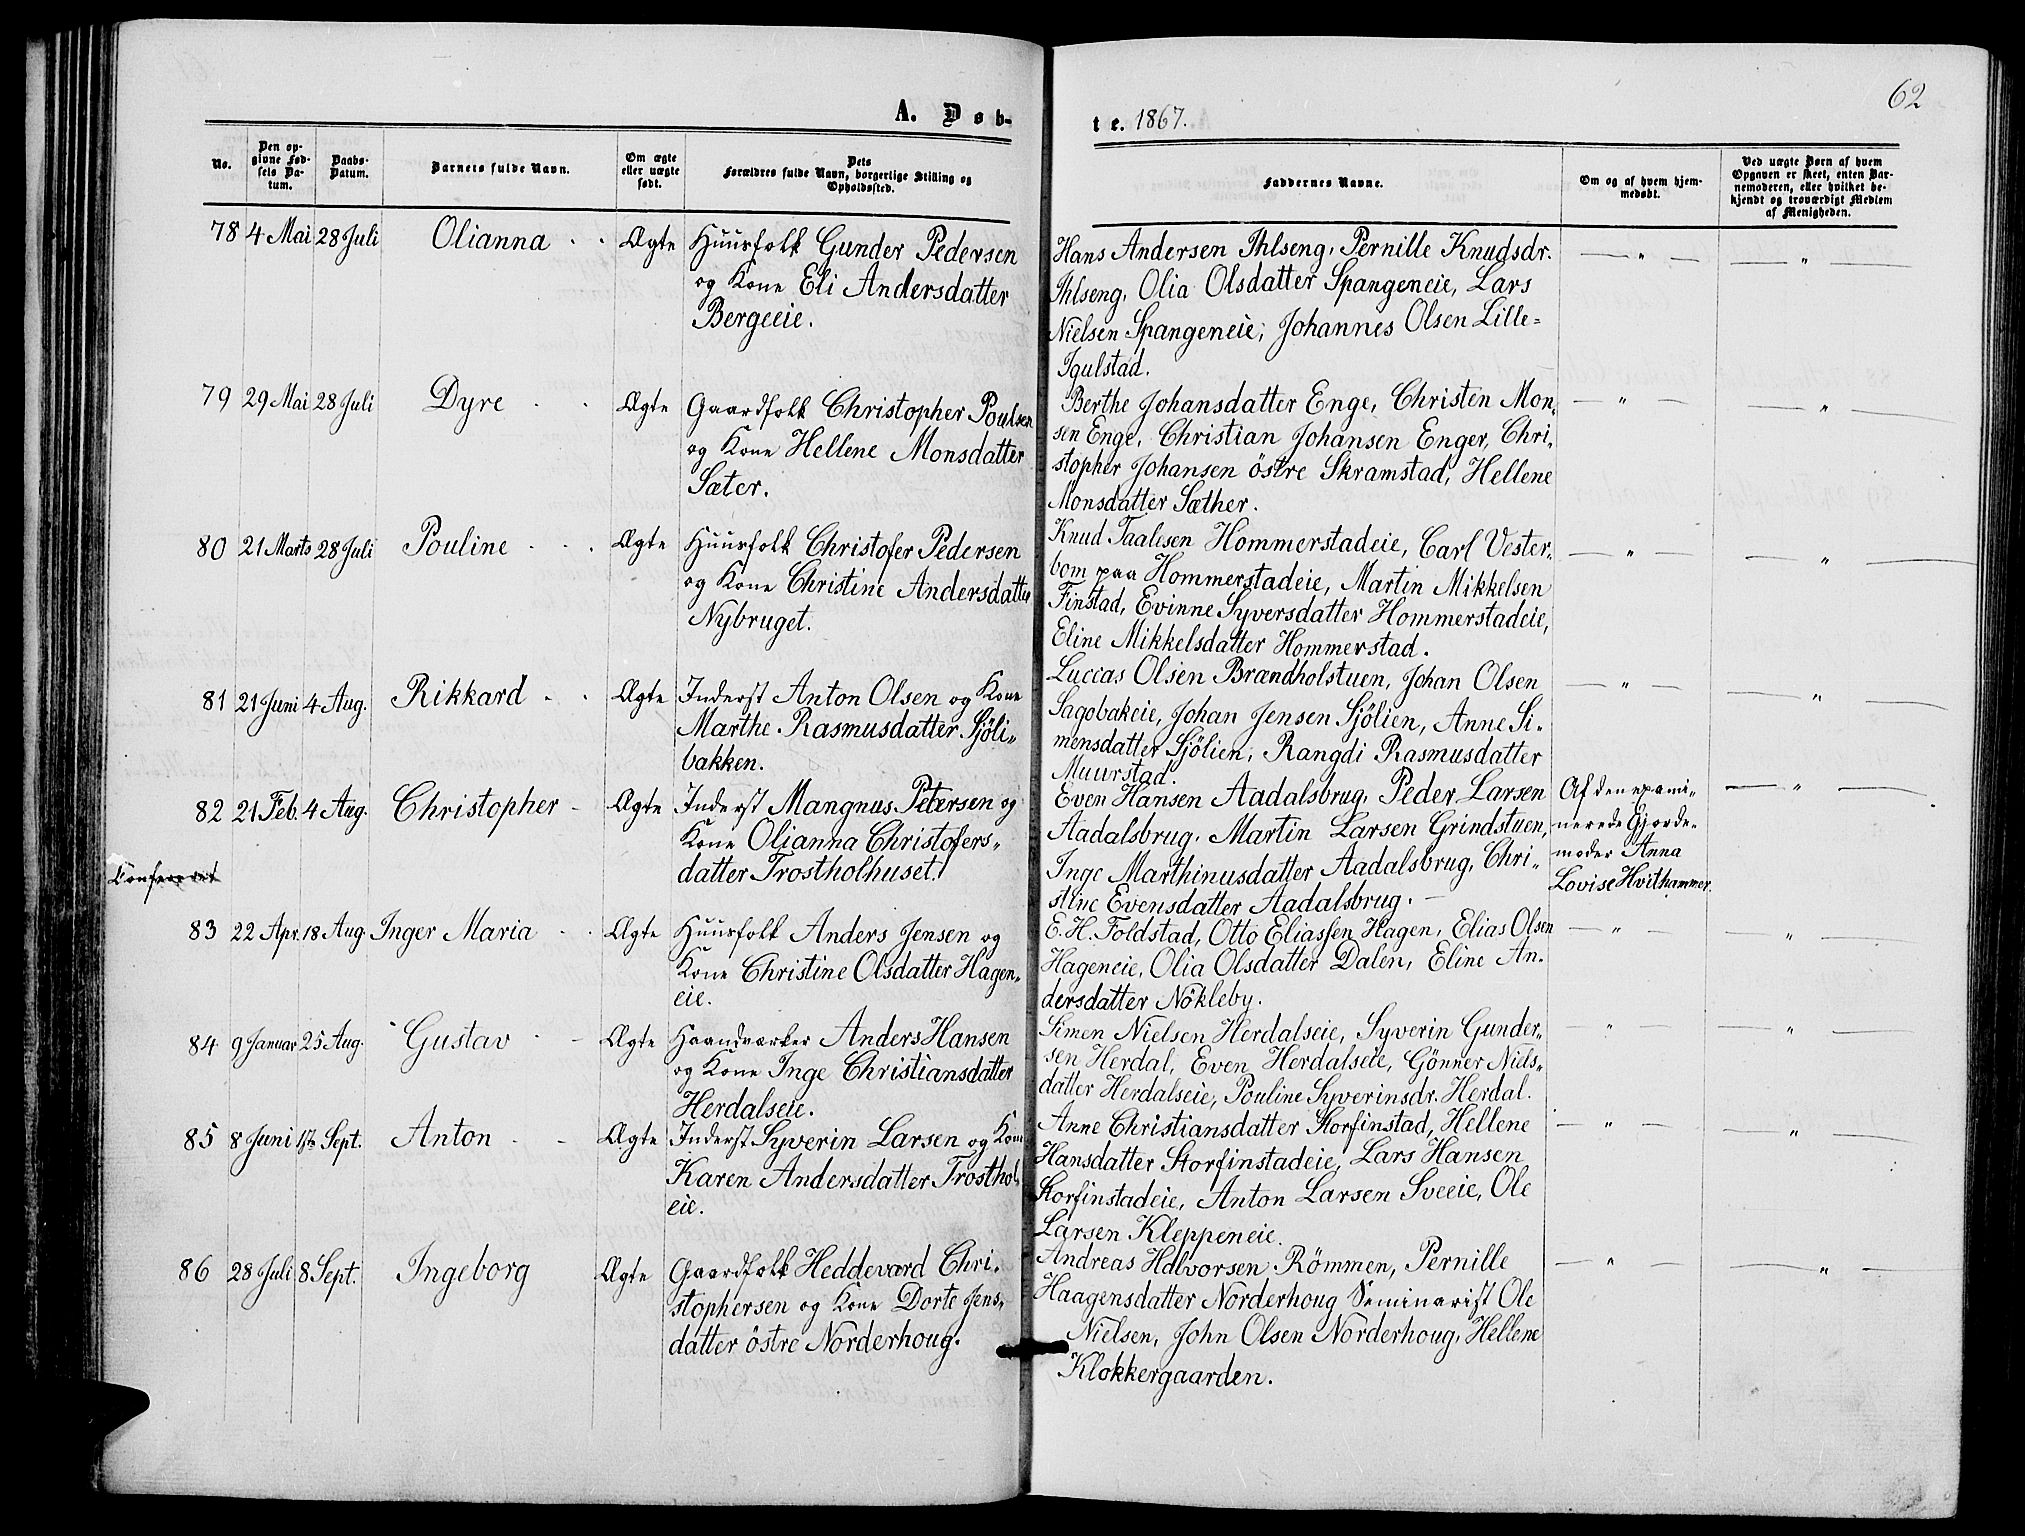 62
A. Døb-
te. 1867.
No.
Den op-
givne Fød-
sels Da-
tum.
Daabs-
Datum.
Barnets fulde Navn.
Om ægte
eller uægte
født.
Dets
Forældres fulde Navn, borgerlige Stilling og
Opholdssted.
Faddernes Navne.
Om og af hvem hjem-
medøbt.
Ved uægte Børn af hvem
Opgaven er skeet, enten Bar-
nemoderen, eller hvilket be-
kjendt og troværdigt Medlem
af Menigheden.
78 4 Mai 28 Juli Olianna Ægte Huusfolk Gunder Pedersen
og Kone Eli Andersdatter
Bergeeie.
Hans Andersen Ihlseng, Pernille Knudsdr.
Ihlseng, Olia Olsdatter Spangeneie, Lars
Nielsen Spangeneie, Johannes Olsen Lille-
Igulstad.
— " — — " —
79 29 Mai 28 Juli Dyre Ægte Gaardfolk Christopher Poulsen
og Kone Hellene Monsdatter
Sæter.
Berthe Johansdatter Enge, Christen Mon-
sen Enge, Christian Johansen Enger, Chri-
stopher Johansen östre Skramstad, Hellene
Monsdatter Sæther.
— " — — " —
80 21 Marts 28 Juli Pouline Ægte Huusfolk Christofer Pedersen
og Kone Christine Andersdatter
Nybruget.
Knud Taalesen Hommerstadeie, Carl Vester-
bom paa Hommerstadeie, Martin Mikkelsen
Finstad, Evinne Syversdatter Hommerstadeie,
Eline Mikkelsdatter Hommerstad.
— " — — " —
81 21 Juni 4 Aug. Rikkard Ægte Inderst Anton Olsen og Kone
Marthe Rasmusdatter Sjöli-
bakken.
Luccas Olsen Brændholstuen, Johan Olsen
Sagobakeie, Johan Jensen Sjölien, Anne Si-
mensdatter Sjölien, Rangdi Rasmusdatter
Muurstad.
— " — — " —
82 21 Feb. 4 Aug. Christopher Ægte Inderst Mangnus Petersen og
Kone Olianna Christofers-
datter Trostholhuset.
Even Hansen Aadalsbrug, Peder Larsen
Aadalsbrug, Martin Larsen Grindstuen,
Inge Marthinusdatter Aadalsbrug, Chri-
stine Evensdatter Aadalsbrug. —
Af den exami-
nerede Gjorde-
moder Anna
Lovise Hvithammer.
— " —
Confereret
83 22 Apr. 18 Aug Inger Maria Ægte Huusfolk Anders Jensen og
Kone Christine Olsdatter Hagen-
eie.
E. H. Foldstad, Otto Eliassen Hagen, Elias Olsen
Hageneie, Olia Olsdatter Dalen, Eline An-
dersdatter Nökleby.
— " — — " —
84 9 Januar 25 Aug. Gustav Ægte Haandværker Anders Hansen
og Kone Inge Christiansdatter
Herdalseie.
Simen Nielsen Herdalseie, Syverin Gunder-
sen Herdal, Even Herdalseie, Gönner Niels-
datter Herdalseie, Pouline Syverinsdr. Herdal.
" — " —
85 8 Juni 1ste Sept. Anton Ægte Inderst Syverin Larsen og Kone
Karen Andersdatter Trosthol-
eie.
Anne Christiansdatter Storfinstad, Hellene
Hansdatter Storfinstadeie, Lars Hansen
Storfinstadeie, Anton Larsen Sveeie, Ole
Larsen Kleppeneie.
— " — — " —
86 28 Juli 8 Sept. Ingeborg Ægte Gaardfolk Heddevard Chri-
stophersen og Kone Dorte Jens-
datter östre Norderhoug.
Andreas Halvorsen Römmen, Pernille
Haagensdatter Norderhoug Seminarist Ole
Nielsen, John Olsen Norderhoug, Hellene
Klokkergaarden.
— " — — " —